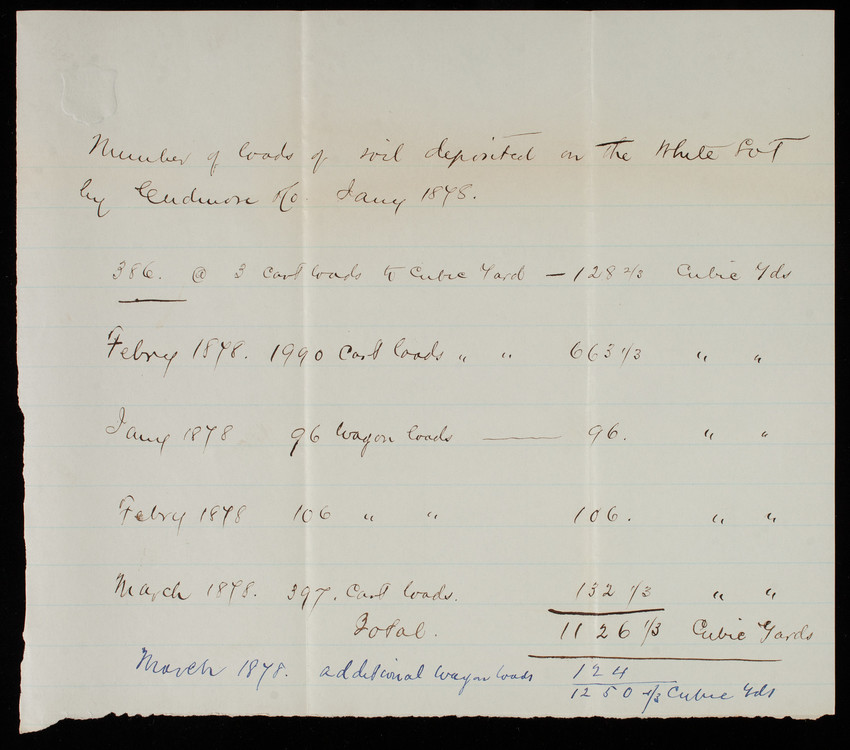 Number of loads of soil deposited on the White Lot
by Cudmore & Co. Jany 1878.
386. @ 3 Cart loads to Cubic Yard — 128 2/3 Cubic Yds
Febry 1878. 1990 Cart loads " " 663 1/3 " "
Jany 1878 96 Wagon loads —— 96. " "
Febry 1878 106 " " 106. " "
March 1878. 397. Cart loads. 132 1/3 " "
Total. 1126 1/3 Cubic Yards
March 1878. additional wagon loads 124
1250 1/3 Cubic Yds